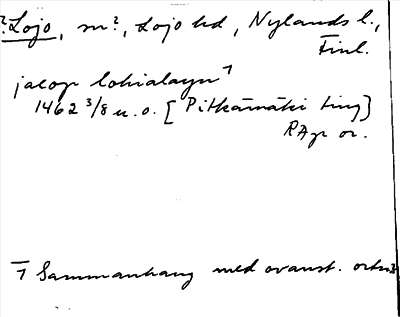 ?Lojo, sn?, Lojo hd, Nylands l.,
Finl.
jacop lohialayn 1
1462 3/8 u. o. [Pitkämäki ting]
RAp or.
1 Sammanhang med ovanst. ortn?